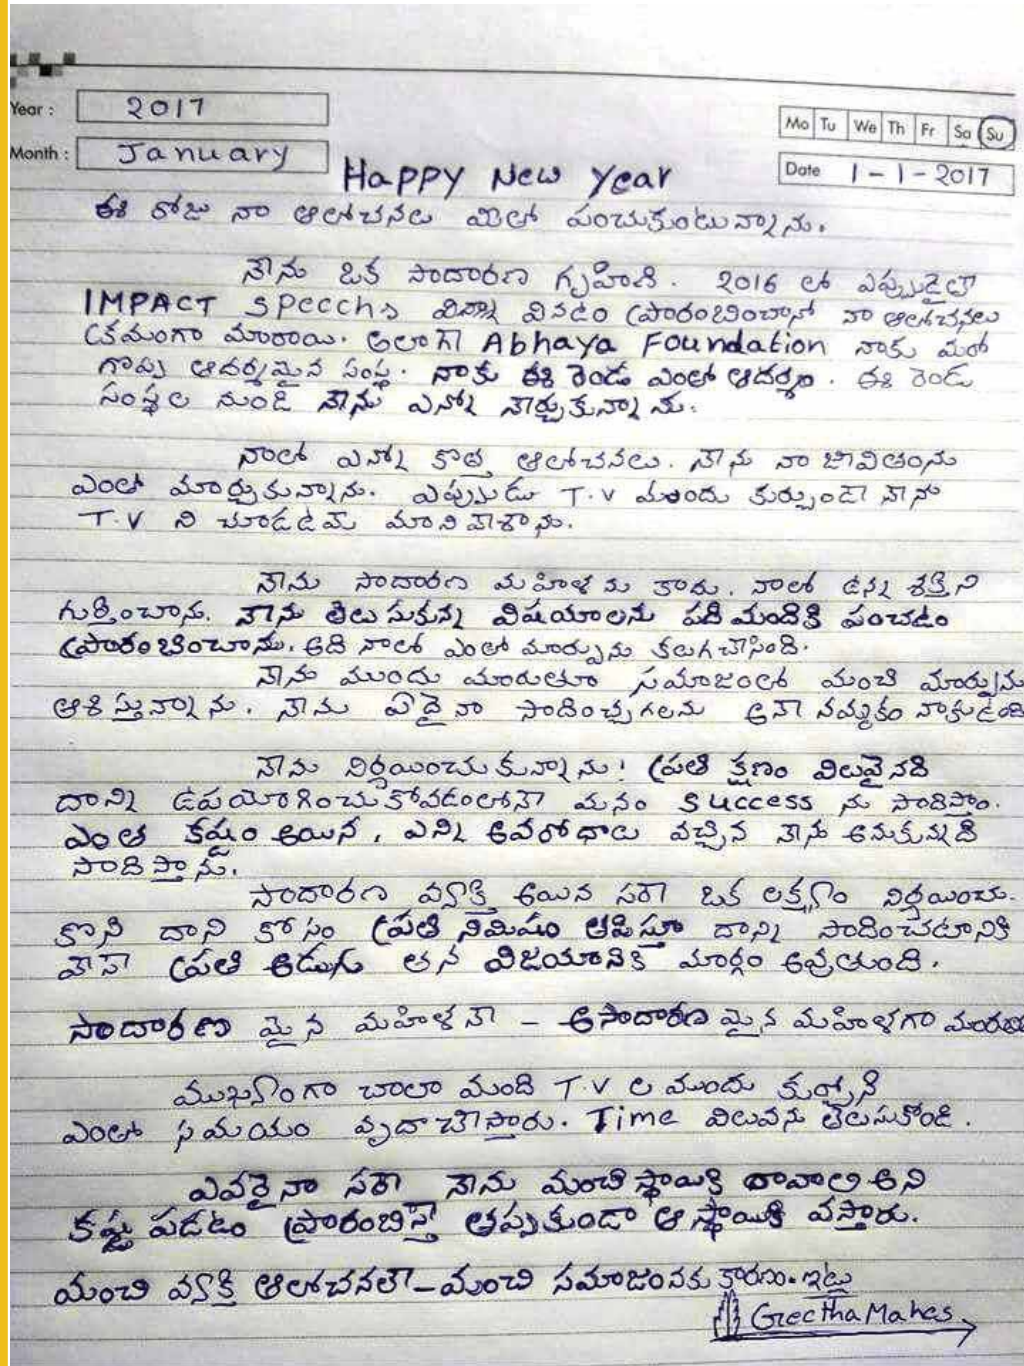 Year : 2017
Mo Tu We Th Fr Sa Su
Month : January
Date 1-1-2017
Happy New Year
ఈ రోజు నా ఆలోచనలు మీతో పంచుకుంటున్నాను.
నేను ఒక సాదారణ గృహిణి. 2016 లో ఎప్పుడైతే
IMPACT Speechs విన్నా వినడం ప్రారంబించానో నా ఆలోచనలు
క్రమంగా మారాయి. అలాగే Abhaya Foundation నాకు మరో
గొప్ప ఆదర్శమైన సంస్థ. నాకు ఈ రెండు ఎంతో ఆదర్శం. ఈ రెండు
సంస్థల నుండి నేను ఎన్నో నేర్చుకున్నాను.
నాలో ఎన్నో కొత్త ఆలోచనలు. నేను నా జీవితంను
ఎంతో మార్చుకున్నాను. ఎప్పుడు T.V ముందు కుర్చుండే నేను
T.V ని చూడడమే మానివేశాను.
నేను సాదారణ మహిళను కాదు. నాలో ఉన్న శక్తిని
గుర్తించాను. నేను తెలుసుకున్న విషయాలను పది మందికి పంచడం
ప్రారంబించాను. అది నాలో ఎంతో మార్పును కలుగచేసింది.
నేను ముందు మారుతూ సమాజంలో మంచి మార్పును
ఆశిస్తున్నాను. నేను ఏదైనా సాదించ్చగలను అనే నమ్మకం నాకుఉంది
నేను నిర్ణయించుకున్నాను! ప్రతి క్షణం విలువైనది
దాన్ని ఉపయోగించుకోవడంలోనే మనం Success ను సాదిస్తాం.
ఎంత కష్టం అయిన, ఎన్ని అవరోధాలు వచ్చిన నేను అనుకున్నది
సాదిస్తాను.
సాదారణ వ్యక్తి అయిన సరే ఒక లక్ష్యం నిర్ణయించు-
కొని దాని కోసం ప్రతి నిమిషం తపిస్తూ దాన్ని సాదించటానికి
వేసే ప్రతి అడుగు తన విజయానికి మార్గం అవుతుంది.
సాదారణ మైన మహిళనే - అసాదారణ మైన మహిళగా
ముఖ్యంగా చాలా మంది T.V ల ముందు కుర్చుని
ఎంతో సమయం వృదాచేస్తారు. Time విలువను తెలుసుకోండి.
ఎవరైనా సరే నేను మంచి స్థాయికి రావాలి అని
కష్ట పడడం ప్రారంబిస్తే తప్పకుండా ఆ స్థాయికి వస్తారు.
మంచి వ్యక్తి ఆలోచనలే - మంచి సమాజంనకు కారణం. ఇట్లు
Geetha Mahes